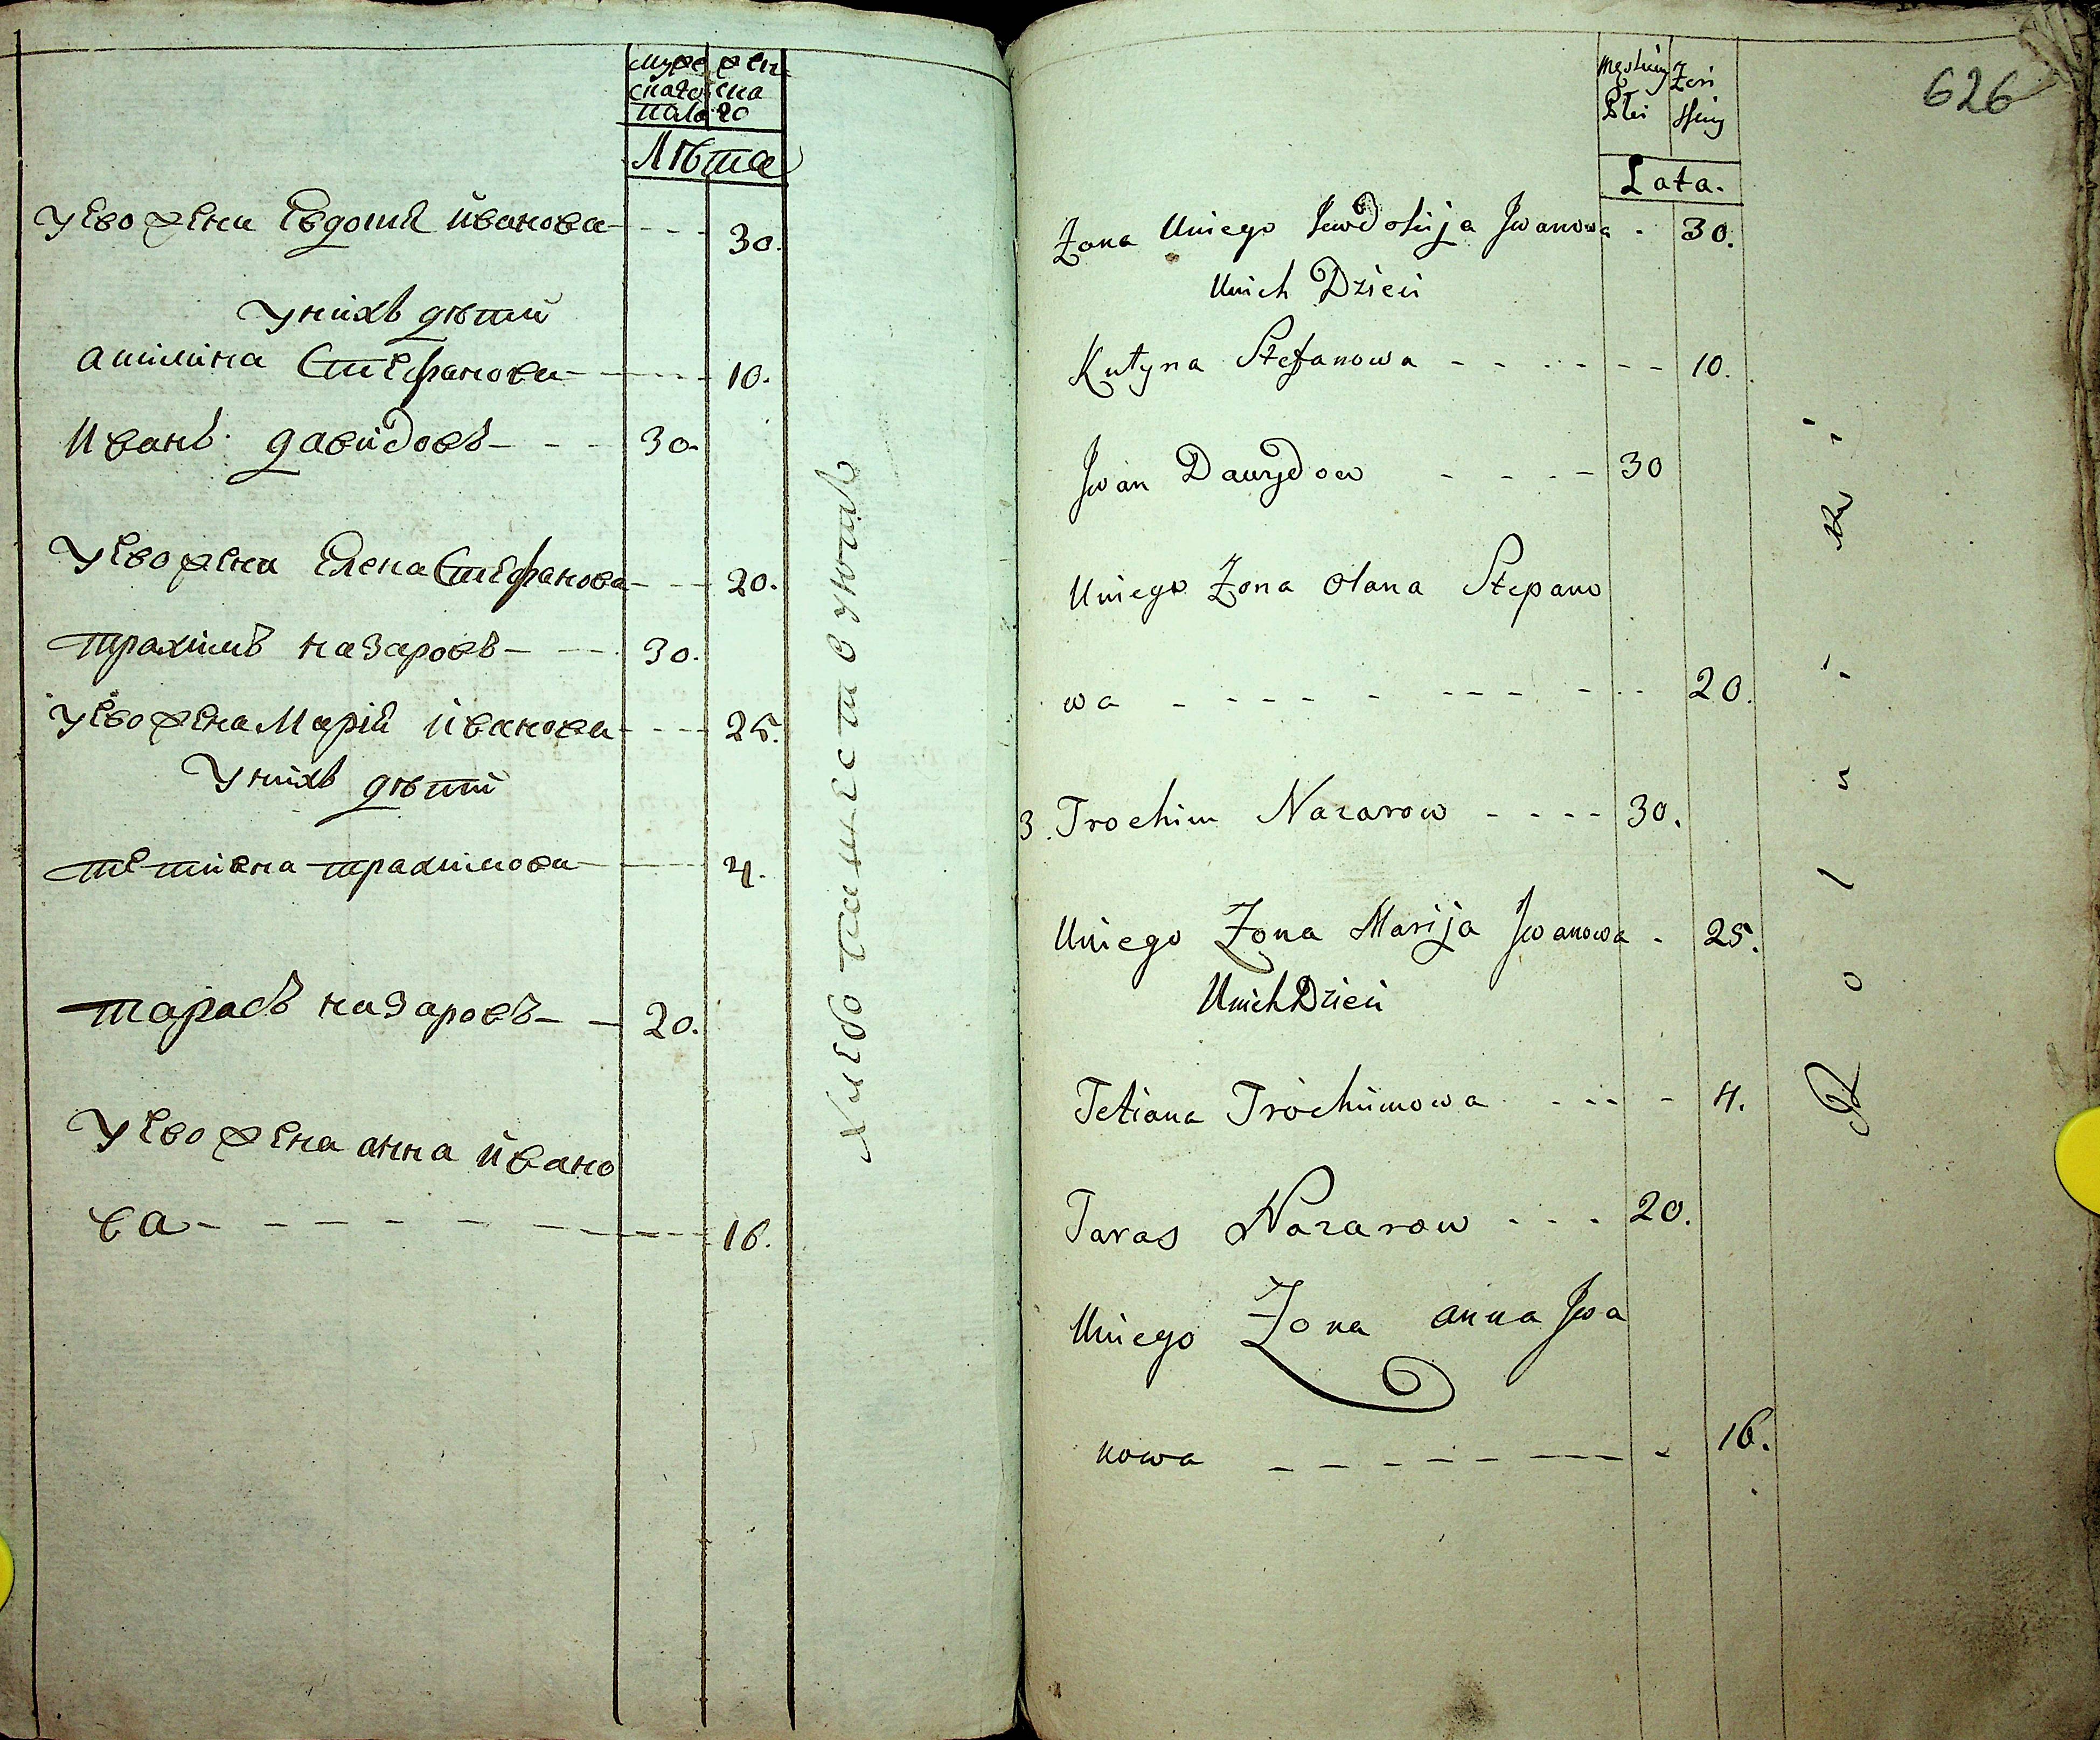 муже
скаго
пола
жен
ска
го
Лѣта
У ево жена Евдокия Иванова - - - 30.
У нихъ дѣти
Акилина Стефанова - - - 10.
Иванъ Давидовъ - - - 30.
У ево жена Елена Стефанова - - - 20.
Трахимъ Назаровъ - - - 30.
У ево жена Марія Иванова - - - 25.
У нихъ дѣти
Тетияна Трахимова - - - 4.
Тарасъ Назаровъ - - 20.
У ево жена Анна Ивано
ва - - - - - - - - - 16.
626
Męskiey
Płci
Żeń
skiey
Lata.
Żona Uniego Jewdokija Jwanowa - 30.
Unich Dzieci
Kutyna Stefanowa - - - - - - - 10.
Jwan Dawydow - - - - 30
Uniego Żona Olana Stepano
wa - - - - - - - - - - - 20.
3. Trochim Nazarow - - - - 30.
Uniego Żona Marija Jwanowa - 25.
Unich Dzieci
Tetiana Trochimowa - - - - 4.
Taras Nazarow - - - 20.
Uniego Żona Anna Jwa
nowa - - - - - - - - - 16.